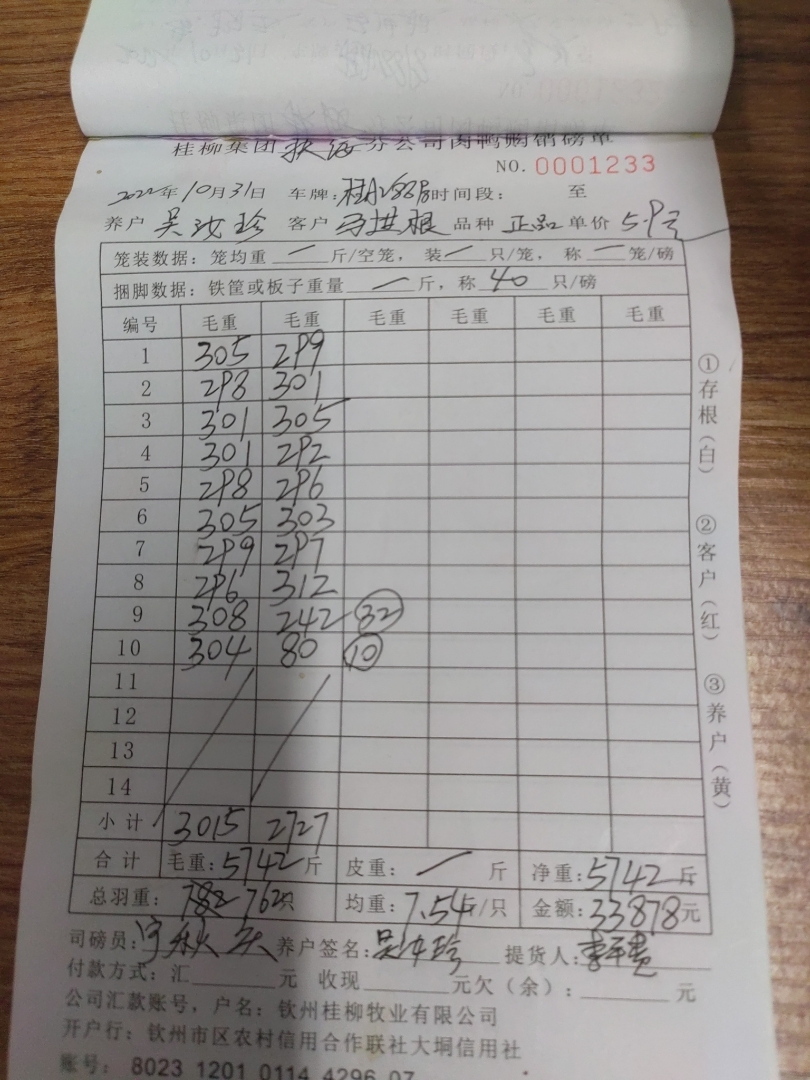 桂柳集团扶海分公司肉鸭购销磅单
NO. 0001233
2022年10月31日 车牌: 时间段: 至
养户 吴汝珍 客户 马洪根 品种 正品 单价 5.9元
笼装数据: 笼均重 一 斤/空笼, 装 一 只/笼, 称 一 笼/磅
捆脚数据: 铁筐或板子重量 一 斤, 称 40 只/磅
编号 毛重 毛重 毛重 毛重 毛重 毛重
1 305 299
2 298 301
3 301 305
4 301 292
5 298 296
6 305 303
7 299 297
8 296 312
9 308 242 32
10 304 80 10
11
12
13
14
小计 3015 2727
合计 毛重: 5742斤 皮重: 一 斤 净重: 5742斤
总羽重: 782 762只 均重: 7.54斤/只 金额: 33878元
司磅员: 养户签名: 吴汝珍 提货人:
付款方式: 汇 元 收现 元欠(余): 元
公司汇款账号, 户名: 钦州桂柳牧业有限公司
开户行: 钦州市区农村信用合作联社大垌信用社
账号: 8023 1201 0114 4296 07
①存根(白)
②客户(红)
③养户(黄)